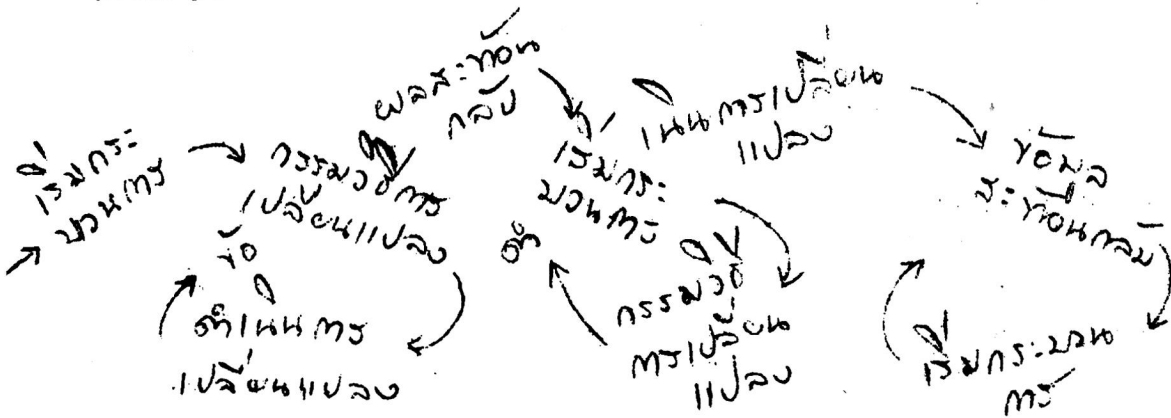 เริ่มกระ
บวนการ
กรรมวิธีการ
เปลี่ยนแปลง
ข้อ
ดำเนินการ
เปลี่ยนแปลง
ผลสะท้อน
กลับ
เริ่มกระ
บวนการ
ดำ
เนินการเปลี่ยน
แปลง
กรรมวิธี
การเปลี่ยน
แปลง
ข้อมูล
สะท้อนกลับ
เริ่มกระบวน
การ